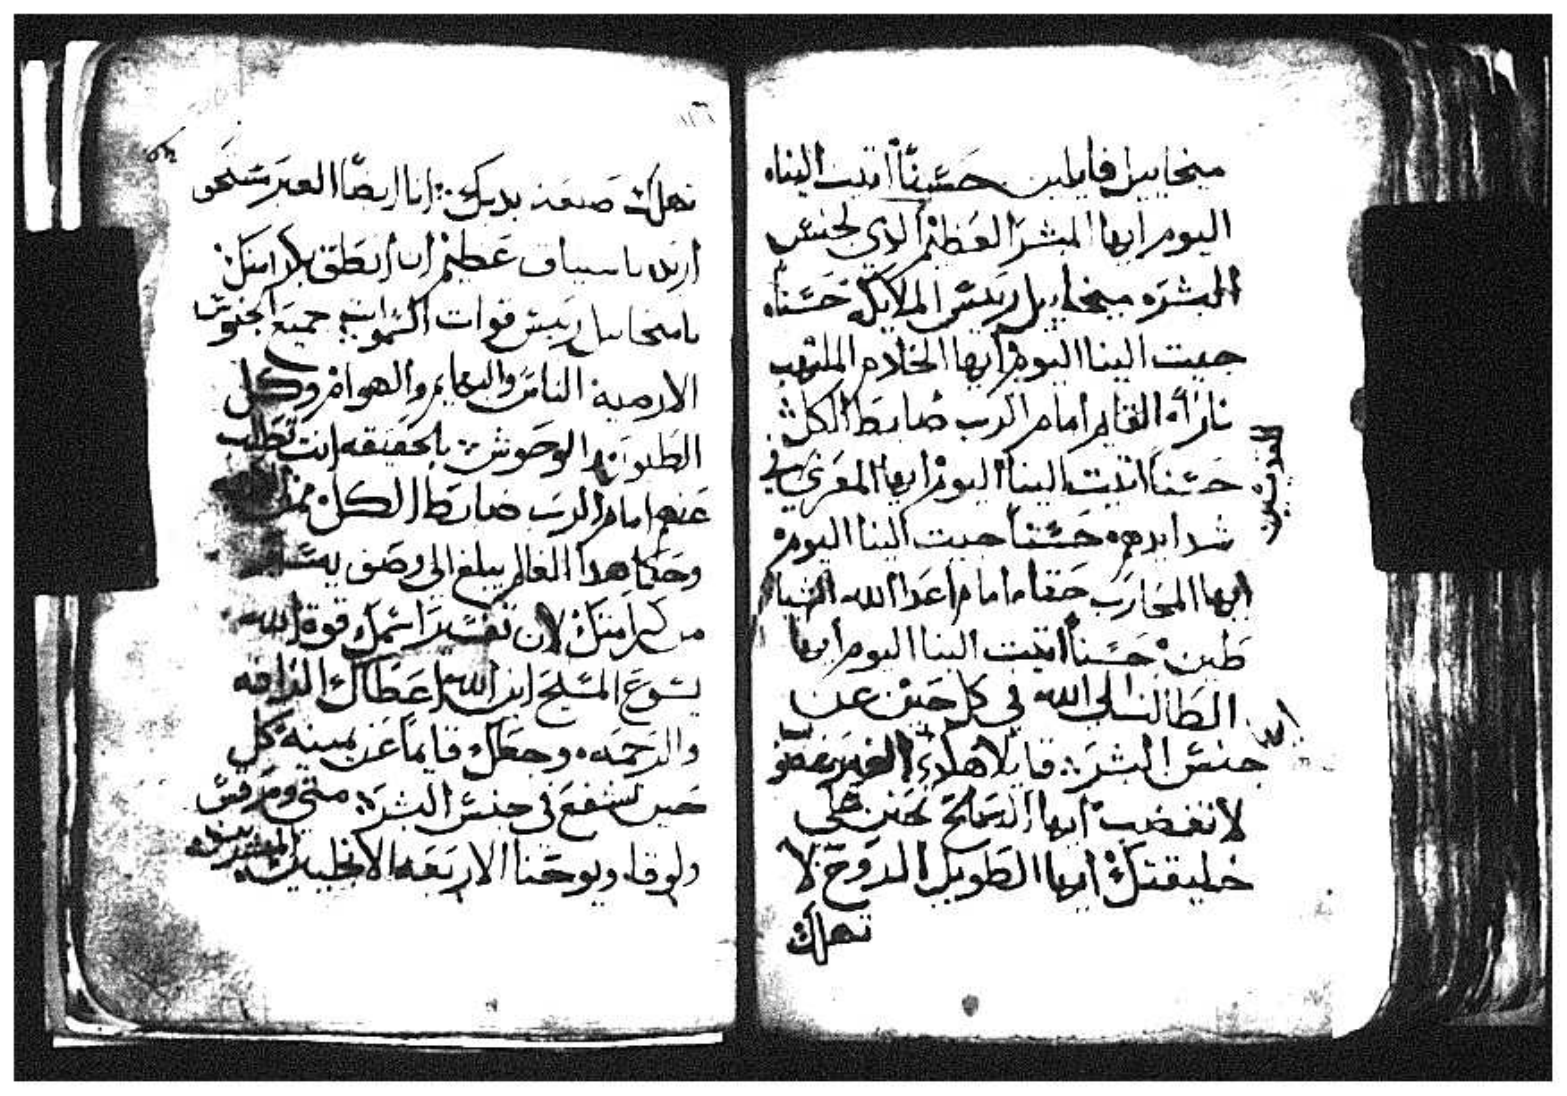 ميخاييل قايلين حسناً اتيت الينا
اليوم ايها المبشر العظيم الذي لجنس
البشر ميخاييل رييس الملايكه حسناً
جيت الينا اليوم ايها الخادم الملتهب
ناراً القايم امام الرب ضابط الكل
حسناً اتيت الينا اليوم ايها المعزي في
شدايدهم حسناً جيت الينا اليوم
ايها المحارب حقاً امام اعدا الله الشيا
طين حسناً اتيت الينا اليوم ايها
الطالب الى الله في كل حين عن
جنس البشر قايلا هكذي
لا تغضب ايها الصالح تحنن على
خليقتك ايها الطويل الروح لا
تهلك
القديسين
١٣٦
تهلك صنعة يديك انا ايضاً الغير مستحق
اريد يا سياف عظيم ان انطق بكرامتك
يا ميخاييل رييس قوات السموات جميع الجنوس
الارضية الناس والبهايم والهوام وكل
الطيور والوحوش بالحقيقه انت تطلب
عنهم امام الرب ضابط الكل
وحكما هذا العالم يبلغ الى وصف
من كرامتك لان تفسير اسمك قوة الله
يسوع المسيح ابن الله اعطاك الرافه
والرحمه وجعلك قايماً عن يمينه كل
حين تشفع في جنس البشر متى ومرقس
ولوقا ويوحنا الاربعه الانجليين